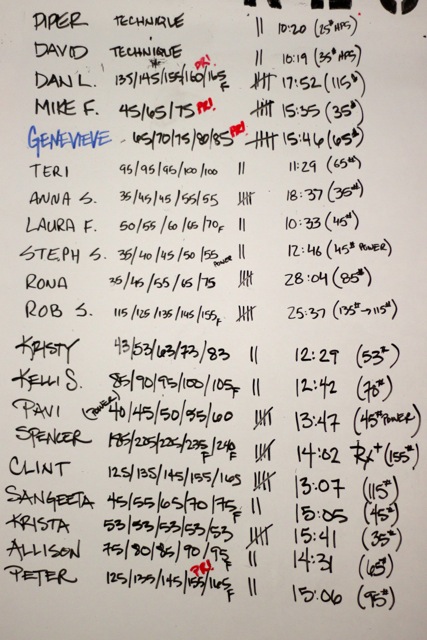 PIPER TECHNIQUE || 10:20 (25# HPS)
DAVID TECHNIQUE || 10:19 (35# HPS)
DAN L. 135/145/155/160/165F PR! 17:52 (115#)
MIKE F. 45/65/75 PR! 15:35 (35#)
GENEVIEVE 65/70/75/80/85 PR! 15:46 (65#)
TERI 95/95/95/100/100 || 11:29 (65#)
ANNA S. 35/45/45/55/55 18:37 (35#)
LAURA F. 50/55/60/65/70F || 10:33 (45#)
STEPH S. 35/40/45/50/55 POWER || 12:46 (45# POWER)
RONA 35/45/55/65/75 28:04 (85#)
ROB S. 115/125/135/145/155F 25:37 (135#→115#)
KRISTY 43/53/63/73/83 || 12:29 (53#)
KELLI S. 85/90/95/100/105F || 12:42 (70#)
PAVI (POWER) 40/45/50/55/60 13:47 (45# POWER)
SPENCER 185/205/225/235F/240F 14:02 RX+ (155#)
CLINT 125/135/145/155/165 13:07 (115#)
SANGEETA 45/55/65/70/75F || 15:05 (45#)
KRISTA 53/53/53/53/53 15:41 (35#)
ALLISON 75/80/85/90/95F || 14:31 (65#)
PETER 125/135/145/155/165F PR! || 15:06 (95#)